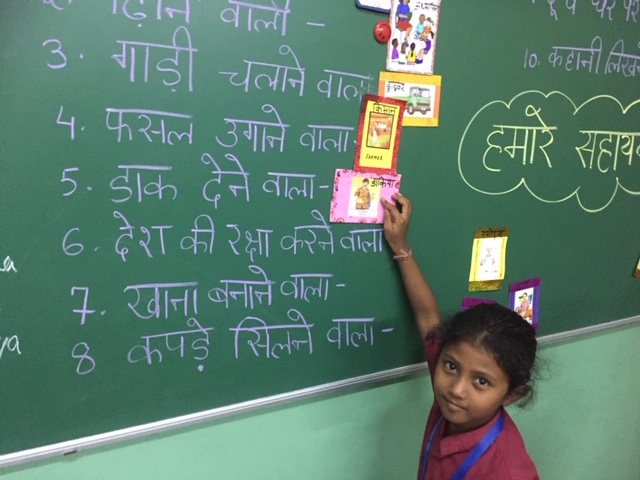 पढ़ाने वाला -
3. गाड़ी चलाने वाला
4. फसल उगाने वाला
5. डाक देने वाला -
6. देश की रक्षा करने वाला
7. खाना बनाने वाला -
8 कपड़े सिलने वाला -
किसान
FARMER
डाकिया
10. कहानी लिखन
हमारे सहायक
ya